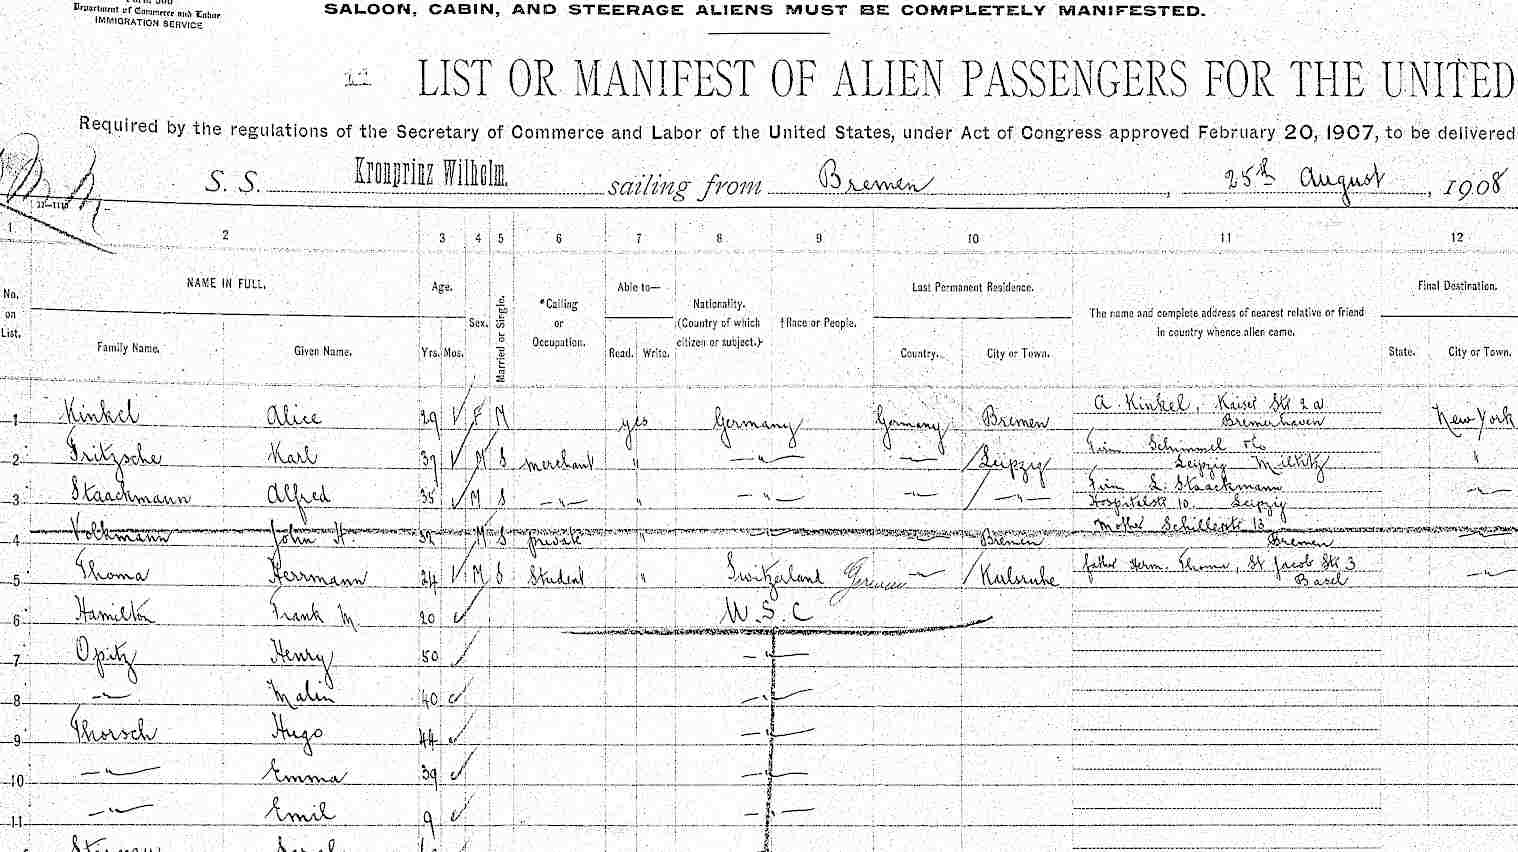 Department of Commerce and Labor
IMMIGRATION SERVICE
SALOON, CABIN, AND STEERAGE ALIENS MUST BE COMPLETELY MANIFESTED.
LIST OR MANIFEST OF ALIEN PASSENGERS FOR THE UNITED
Required by the regulations of the Secretary of Commerce and Labor of the United States, under Act of Congress approved February 20, 1907, to be delivered
S. S. Kronprinz Wilhelm. sailing from Bremen, 25th August, 1908
1 2 3 4 5 6 7 8 9 10 11 12
No. on List. NAME IN FULL. Age. Sex. Married or Single. *Calling or Occupation. Able to— Nationality. (Country of which citizen or subject.) †Race or People. Last Permanent Residence. The name and complete address of nearest relative or friend in country whence alien came. Final Destination.
Family Name. Given Name. Yrs. Mos. Read. Write. Country. City or Town. State. City or Town.
1 Kinkel Alice 29 F M yes Germany Germany Bremen A. Kinkel, Kaiser Str 2a Bremerhaven New York
2 Fritzsche Karl 37 M S merchant " " " Leipzig Schimmel Leipzig Miltitz "
3 Staackmann Alfred 35 M S " " " " " L. Staackmann Hospitalstr 10. Leipzig "
4 Volkmann John H. 32 M S private " " " Bremen Mother Schillerstr 13 Bremen "
5 Thoma Herrmann 24 M S Student " Switzerland German " Karlsruhe father Herm. Thoma, St Jacob Str 3 Basel "
6 Hamilton Frank M 20 U.S.C
7 Opitz Henry 50 "
8 " Malin 40 "
9 Thorsch Hugo 44 "
10 " Emma 39 "
11 " Emil 9 "